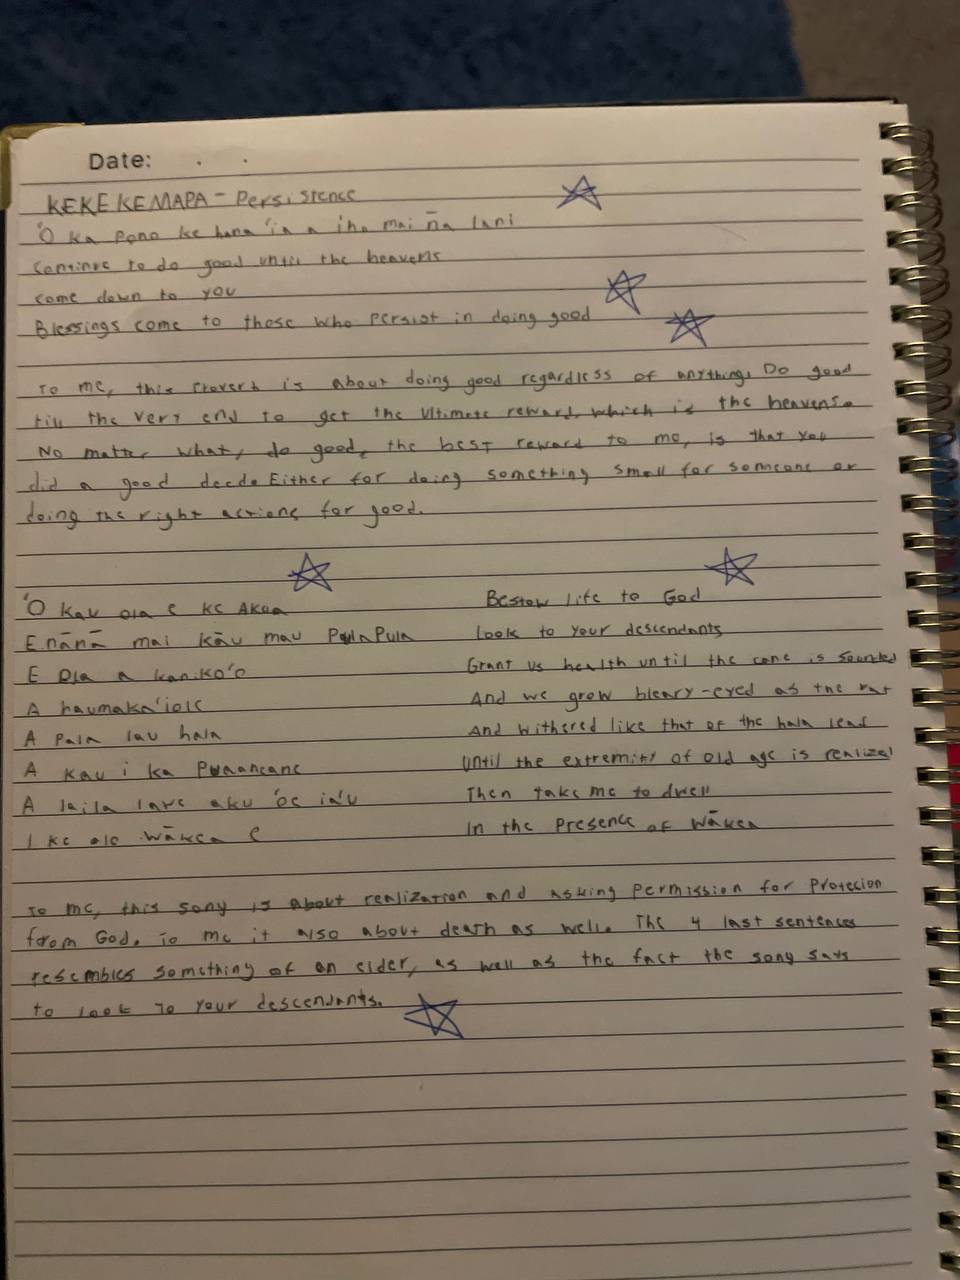 Date: . .
KEKEKEMAPA - Persistence
'O ka pono ke hana 'ia a iho mai ña lani
continue to do good until the heavens
come down to you
Blessings come to those who persist in doing good
To me, this Proverb is about doing good regardless of anything. Do good
till the very end to get the ultimate reward, which is the heavens.
No matter what, do good, the best reward to me, is that you
did a good deed. Either for doing something small for someone or
doing the right actions for good.
'O kau ola e ke Akua
E nānā mai kāu mau PulaPula
E Ola a kaniko'o
A haumaka'iole
A pala lau hala
A kau i ka Puaaneane
A laila lawe aku 'oe ia'u
I ke alo wākea e
Bestow life to God
Look to your descendants
Grant us health until the cane is sounded
And we grow bleary-eyed as the rat
And withered like that of the hala leaf
Until the extremity of old age is realized
Then take me to dwell
In the Presence of Wākea
To me, this song is about realization and asking permission for Protecion
from God. To me it also about death as well. The 4 last sentences
resembles something of an elder, as well as the fact the song says
to look to your descendants.